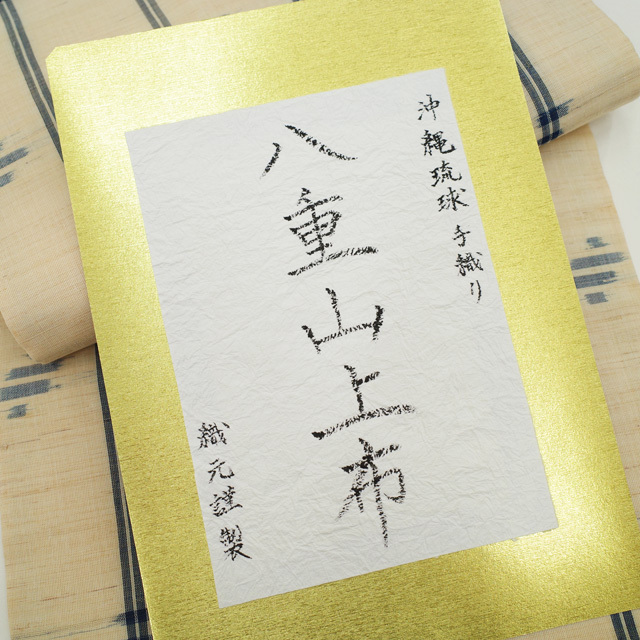 沖縄琉球手織り
八重山上布
織元謹製